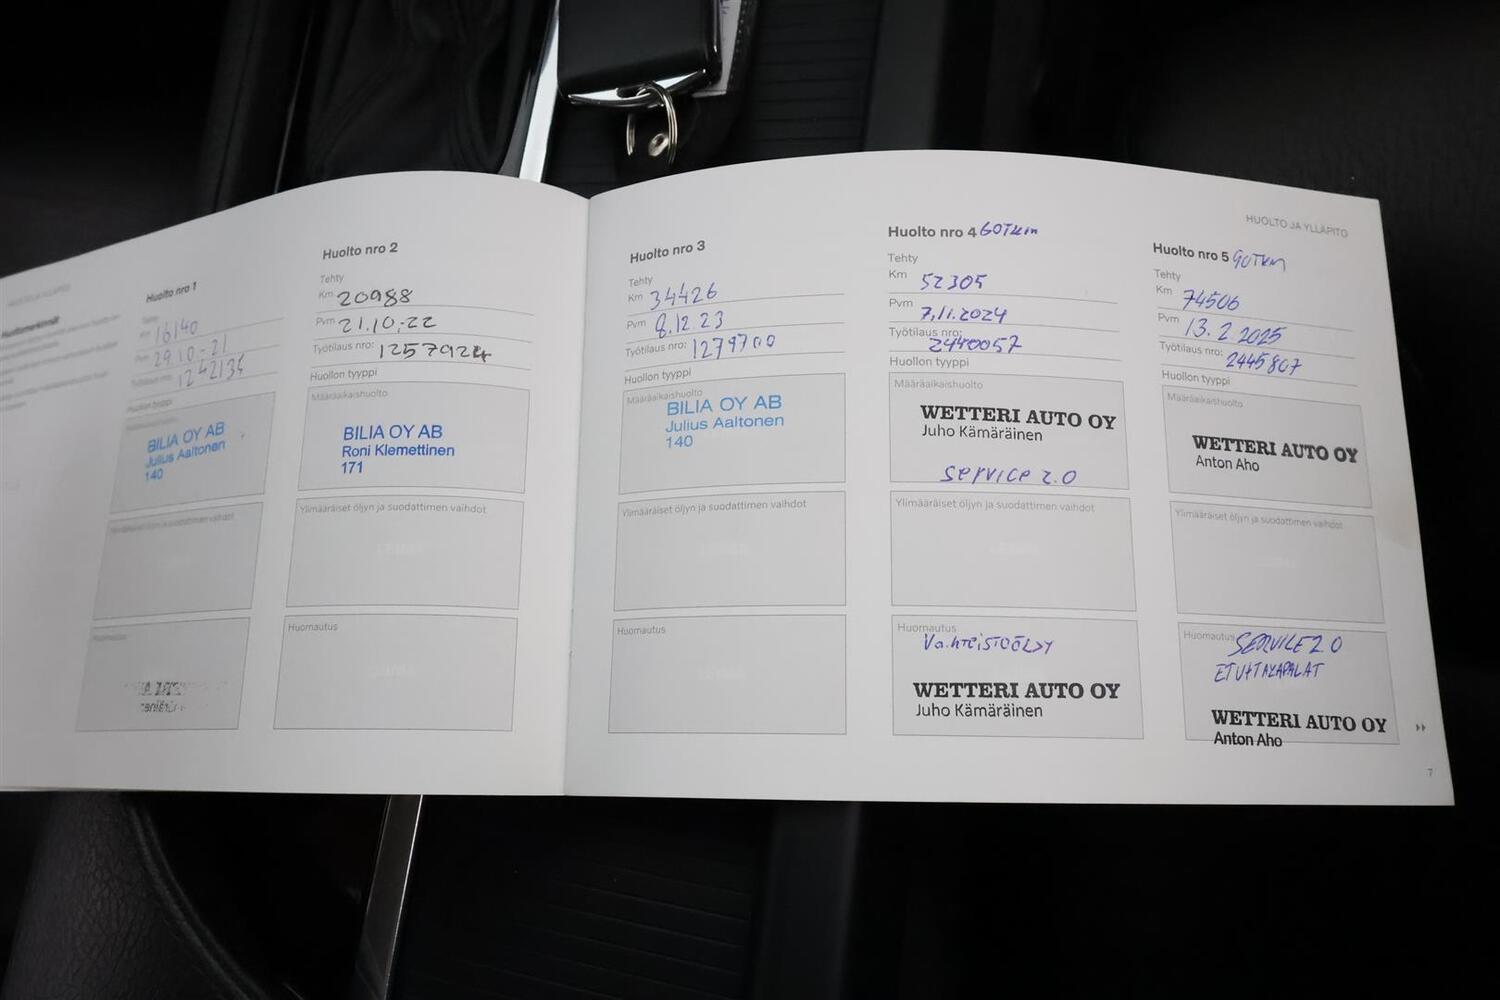 Huolto nro 1
Km 16140
Pvm 29.10.-21
Työtilaus nro: 1242135
Huollon tyyppi
BILIA OY AB
Julius Aaltonen
140
Ylimääräiset öljyn ja suodattimen vaihdot
Huomautus
Huolto nro 2
Tehty
Km 20988
Pvm 21.10.-22
Työtilaus nro: 1257924
Huollon tyyppi
Määräaikaishuolto
BILIA OY AB
Roni Klemettinen
171
Ylimääräiset öljyn ja suodattimen vaihdot
Huomautus
Huolto nro 3
Tehty
Km 34426
Pvm 8.12.23
Työtilaus nro: 1279700
Huollon tyyppi
Määräaikaishuolto
BILIA OY AB
Julius Aaltonen
140
Ylimääräiset öljyn ja suodattimen vaihdot
Huomautus
HUOLTO JA YLLÄPITO
Huolto nro 4 60TKm
Tehty
Km 52305
Pvm 7.11.2024
Työtilaus nro: 2440057
Huollon tyyppi
Määräaikaishuolto
WETTERI AUTO OY
Juho Kämäräinen
service 2.0
Ylimääräiset öljyn ja suodattimen vaihdot
Huomautus
Vaihteistoöljy
WETTERI AUTO OY
Juho Kämäräinen
Huolto nro 5 90TKM
Tehty
Km 74506
Pvm 13.2.2025
Työtilaus nro: 2445807
Huollon tyyppi
Määräaikaishuolto
WETTERI AUTO OY
Anton Aho
Ylimääräiset öljyn ja suodattimen vaihdot
Huomautus SERVICE 2.0
ETUJTALAPALAT
WETTERI AUTO OY
Anton Aho
7